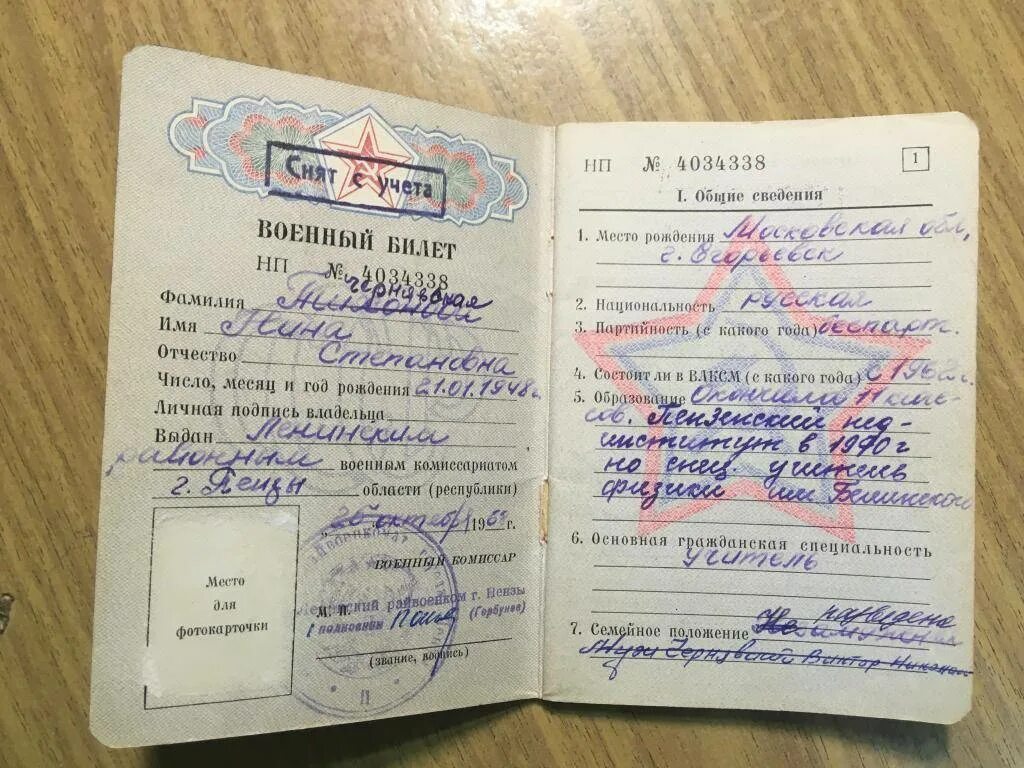 Снят с учета
ВОЕННЫЙ БИЛЕТ
НП № 4034338
Чернявская
Фамилия Тихонова
Имя Нина
Отчество Степановна
Число, месяц и год рождения 21.01.1948г.
Личная подпись владельца
Выдан Ленинским
районным военным комиссариатом
г. Пензы области (республики)
"26" октября 1965 г.
ВОЕННЫЙ КОМИССАР
М. П. Ленинский райвоенком г. Пензы
полковник (Горбунов)
(звание, подпись)
Место
для
фотокарточки
НП № 4034338 1
I. Общие сведения
1. Место рождения Московская обл,
г. Егорьевск
2. Национальность русская
3. Партийность (с какого года) беспарт.
4. Состоит ли в ВЛКСМ (с какого года) с 1962г.
5. Образование Окончила 11 клас-
сов. Пензенский пед-
институт в 1970 г
по спец. учитель
физики им Белинского
6. Основная гражданская специальность
учитель
разведена
7. Семейное положение
Муж Чернявский Виктор